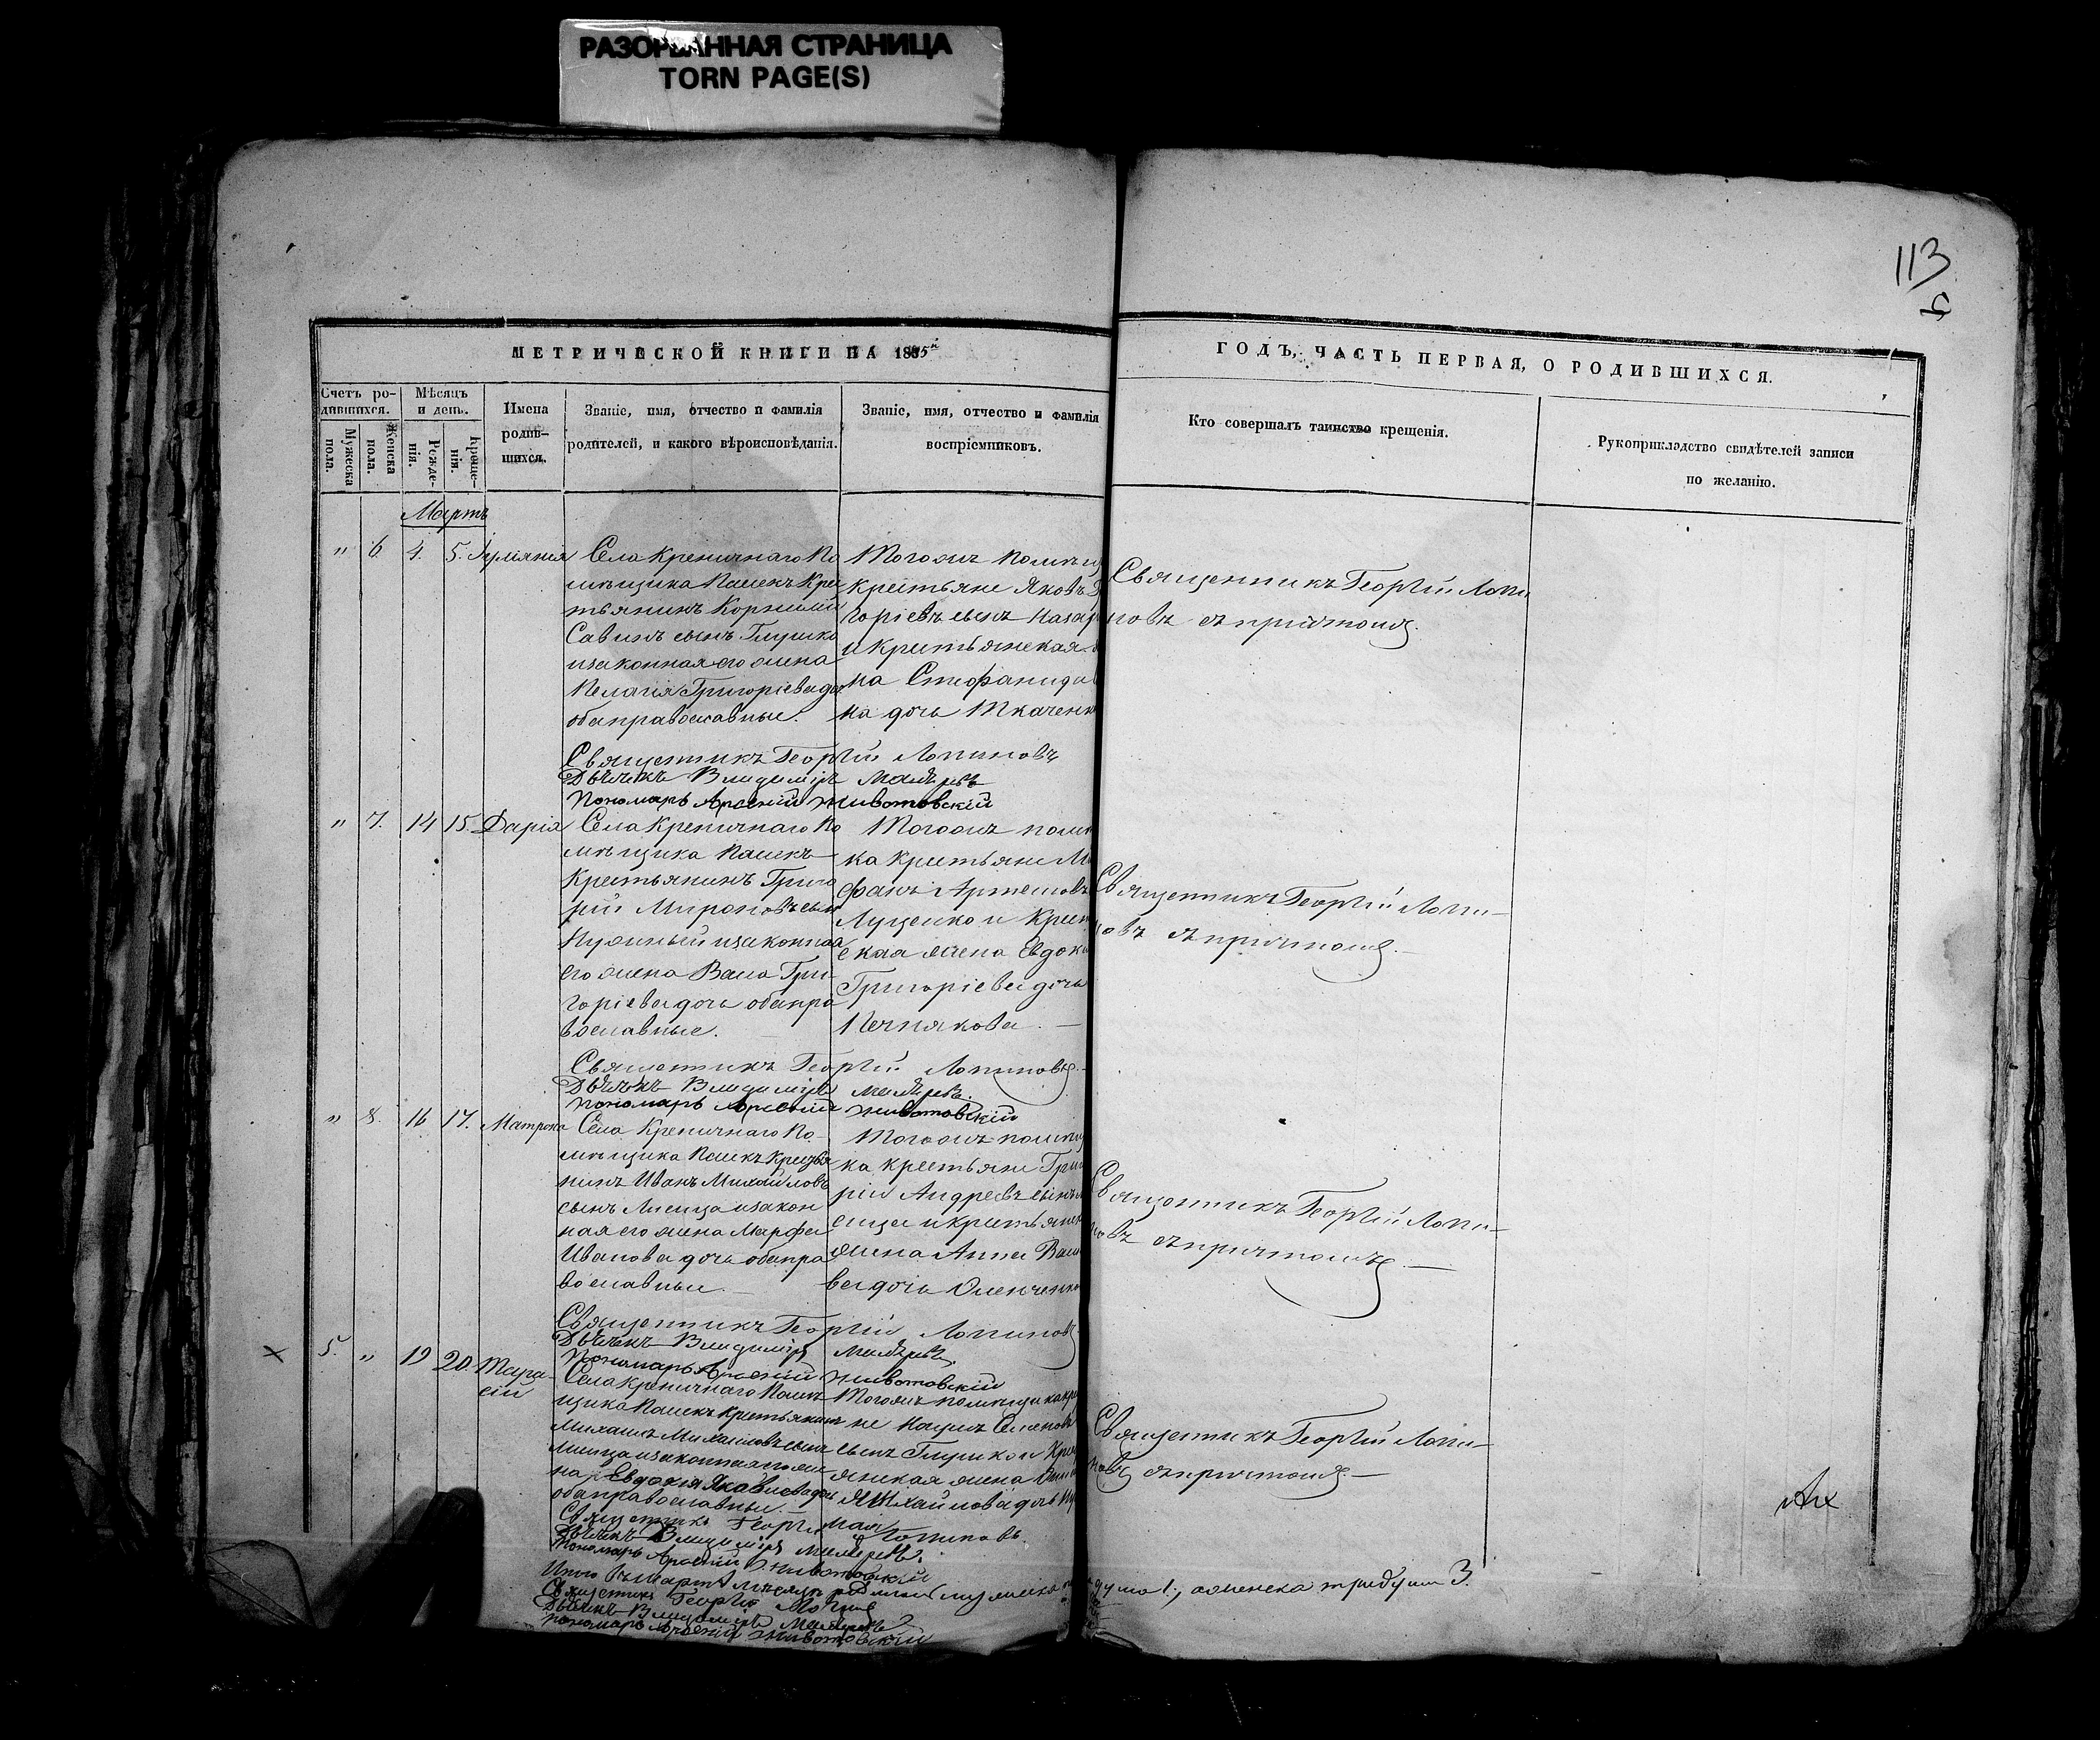 РАЗОРВАННАЯ СТРАНИЦА
TORN PAGE(S)
113
МЕТРИЧЕСКОЙ КНИГИ НА 1845й
ГОДЪ, ЧАСТЬ ПЕРВАЯ, О РОДИВШИХСЯ.
Счетъ ро-
дившихся.
Мужеска
пола.
Женска
пола.
Мѣсяцъ
и день.
Рожде-
нія.
Креще-
нія.
Имена
родив-
шихся.
Званіе, имя, отчество и фамилія
родителей, и какого вѣроисповѣданія.
Званіе, имя, отчество и фамилія
воспріемниковъ.
Кто совершалъ таинство крещенія.
Рукоприкладство свидѣтелей записи
по желанію.
Мартъ
" 6 4. 5. Іуліанія
Села Креничнаго По
мѣщика Пашекъ Крес
тьянинъ Корнилій
Савинъ сынъ Глушко
и законная его жена
Пелагія Григоріева доч
оба православные.
Тогожъ помѣщ
крестьяне Яковъ
горіевъ сынъ Назар
и крестьянская
на Стефанида
на дочь Ткаченк
Священникъ Георгій Лопи
новъ съ причтомъ.
Священникъ Георгій Лопиновъ
Дьячекъ Владиміръ
Пономарь Арсеній Животовскій
" 7. 14 15. Дарія
Села Креничнаго По
мѣщика Пашекъ
Крестьянинъ Григо
рій Мироновъ сын
и законная
его жена Васса Гри-
горіева дочь оба пра
вославные.
Тогожъ помѣ
ка крестьяне
фанъ Артемовъ
Луценко и Крест
ская жена Евдоки
Григоріева дочь
Священникъ Георгій Лопи-
новъ съ причтомъ.
Священникъ Георгій Лопиновъ
Дьячекъ Владиміръ
Пономарь Арсеній Животовскій
" 8. 16 17. Матрона
Села Креничнаго По-
мѣщика Пашекъ Крестья
нинъ Иванъ Михайловъ
сынъ Лисица и закон
ная его жена Марфа
Иванова дочь оба пра
вославные.
Тогожъ помѣщ
ка крестьяне Григо
рій Андреевъ сынъ
сица и крестьянск
жена Анна Васи
ва дочь
Священникъ Георгій Лопи-
новъ съ причтомъ.
Священникъ Георгій Лопиновъ
Дьячекъ Владиміръ
Пономарь Арсеній Животовскій
5. " 19 20. Тара-
сій
Села Креничнаго Помѣ
щика Пашекъ Крестьянинъ
Михаилъ Михайловъ сынъ
Лисица и законная его же
на Евдокія Яковлева дочь
оба православные.
Тогожъ помѣщика кре
не Наумъ Семеновъ
сынъ Глушко и Крес
янская жена
Михайлова дочь
Священникъ Георгій Лопи-
новъ съ причтомъ.
Священникъ Георгій Лопиновъ
Дьячекъ Владиміръ
Пономарь Арсеній Животовскій
Итого въ Мартѣ мѣсяцѣ мужеска душа 1., женска три души 3.
Священникъ Георгій
Дьячекъ Владиміръ
Пономарь Арсеній Животовскій